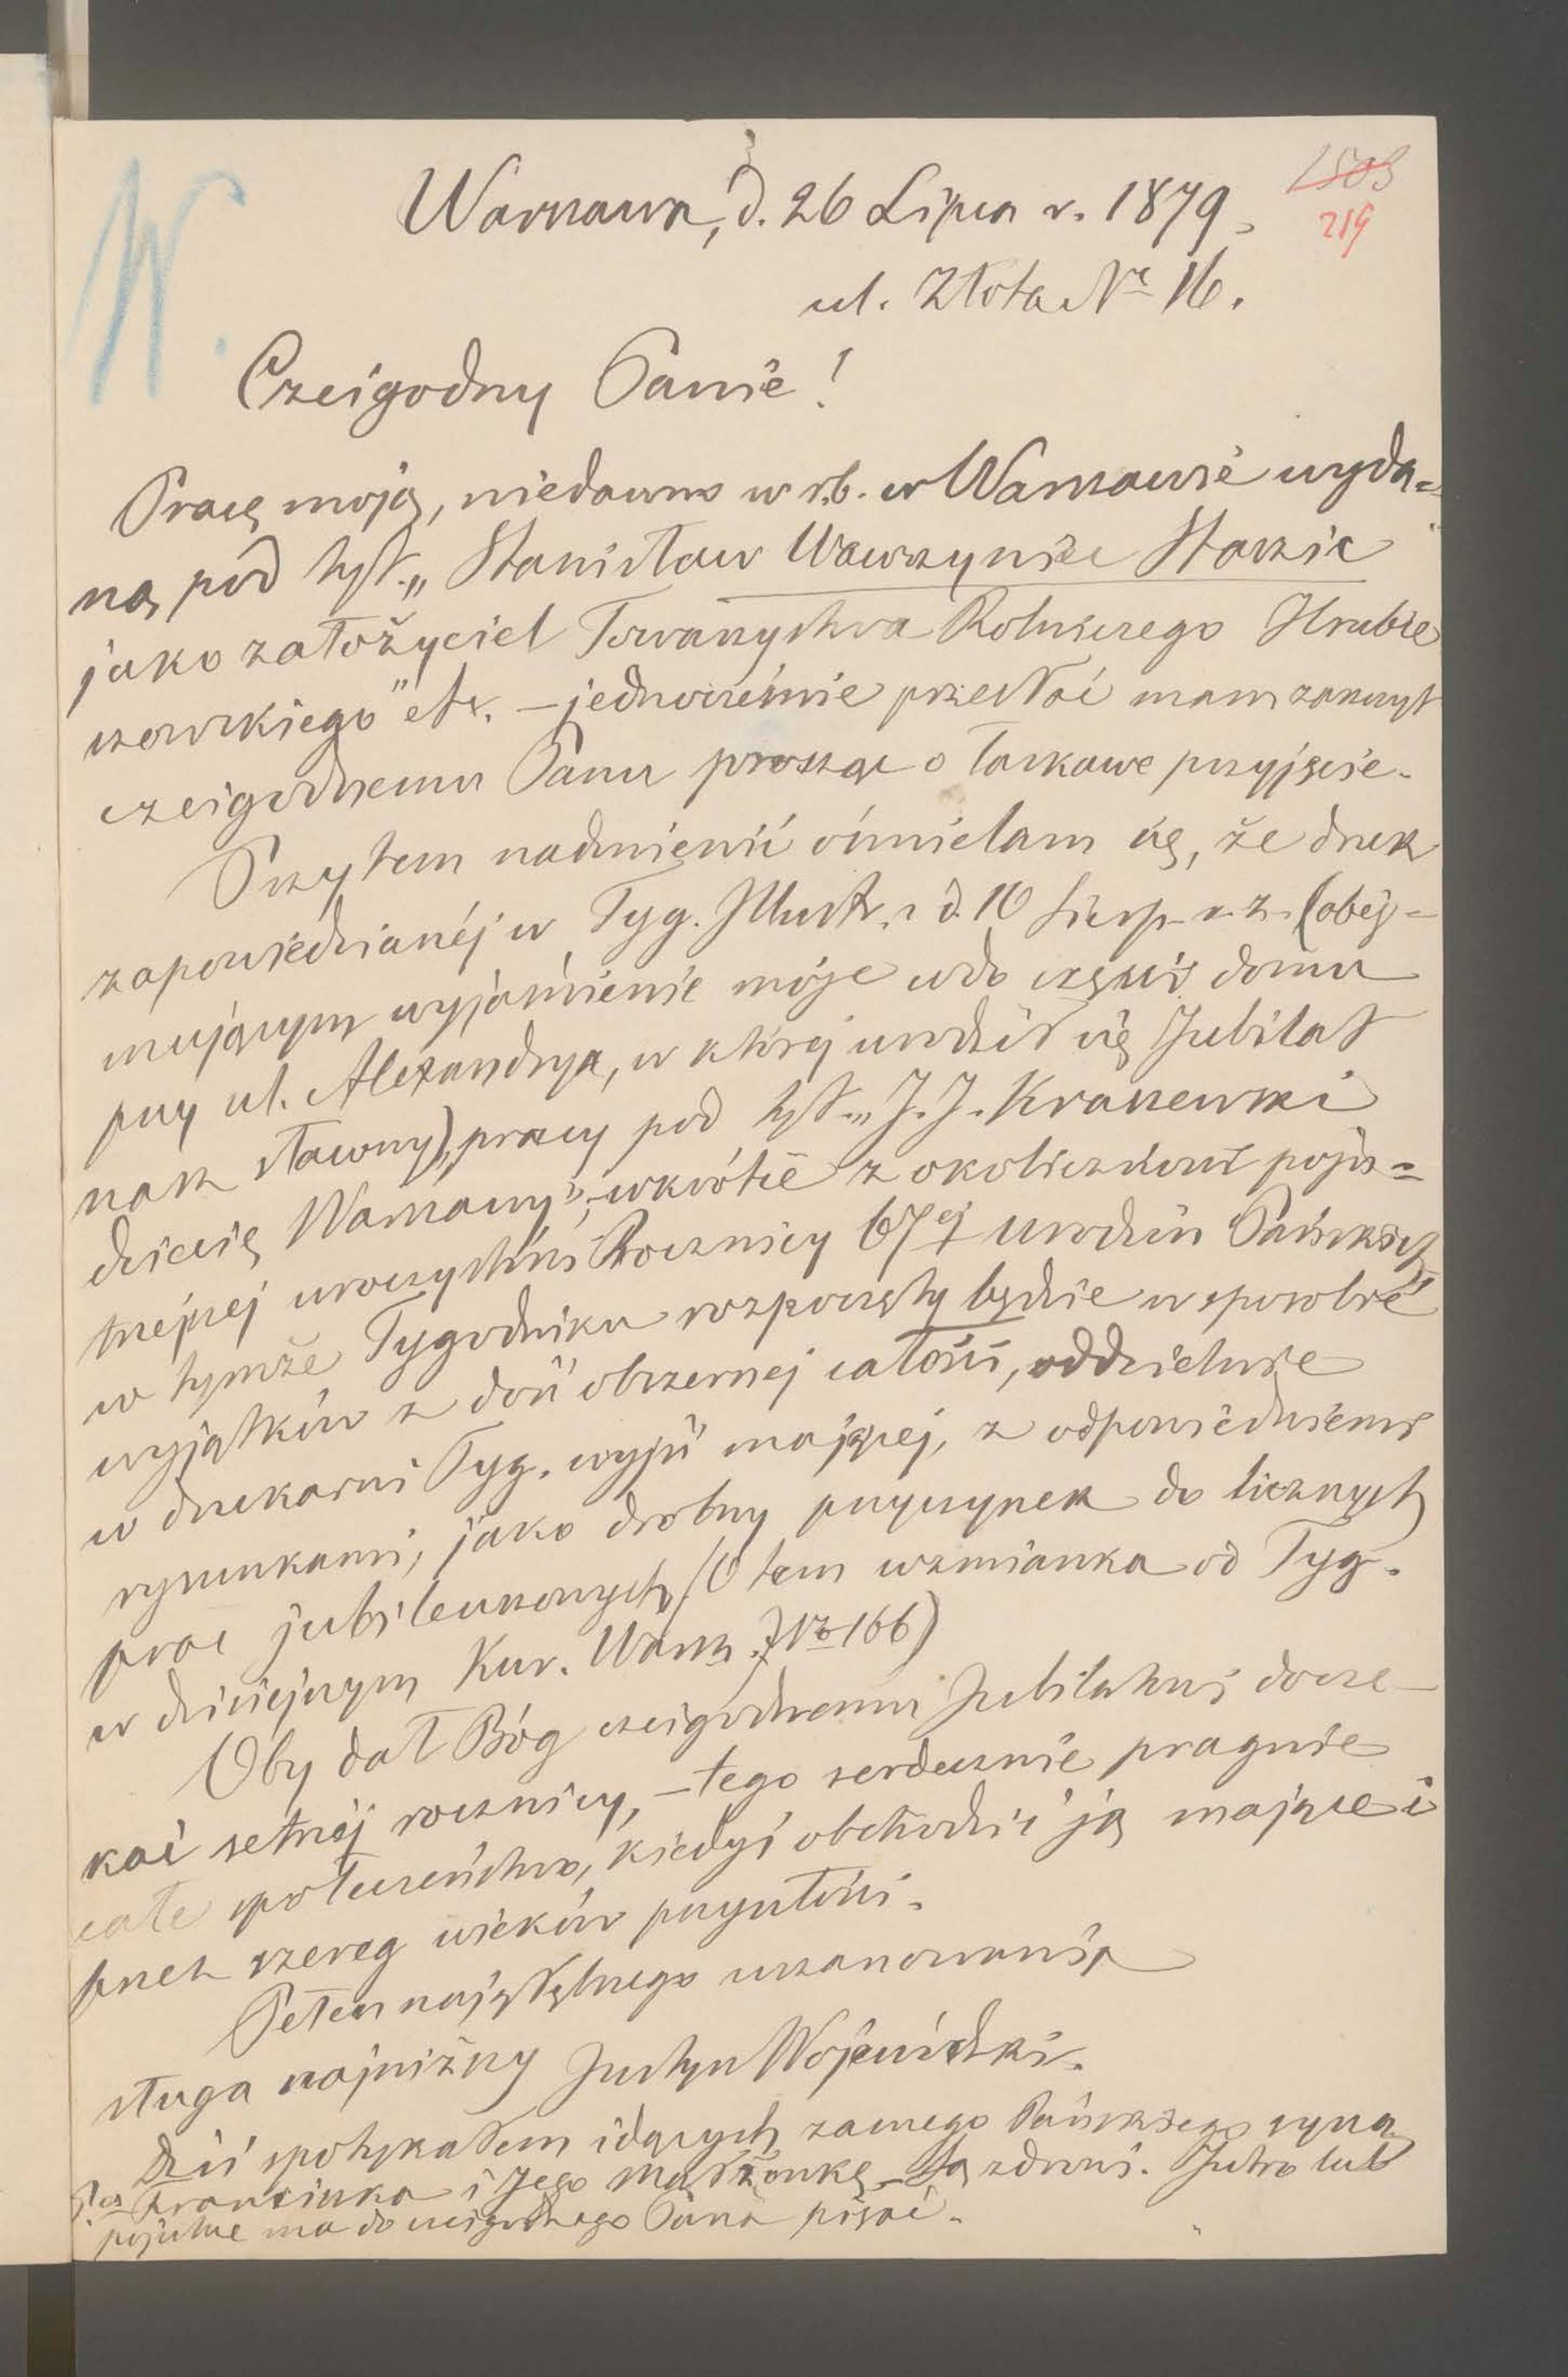 W.
1503
219
Warszawa, d. 26 Lipca r. 1879.
ul. Złota Nr 16.
Czcigodny Panie!
Pracę moją, niedawno w r.b. w Warszawie wyda=
ną pod tyt. „Stanisław Wawrzyniec Staszic
jako założyciel Towarzystwa Rolniczego Hrubie
szowskiego" etc. – jednocześnie przesłać mam zaszczyt
czcigodnemu Panu prosząc o łaskawe przyjęcie.
Przytem nadmienić ośmielam się, że druk
zapowiedzianéj w Tyg. Illustr. z d. 10 Sierp. r. z. (obej=
mującym wyjaśnienie moje co do części domu
przy ul. Alexandrya, w której urodził się Jubilat
nasz sławny), pracy pod tyt. „J. J. Kraszewski
dziecię Warszawy", wkrótce z okoliczności poju=
trzejszej uroczystości Rocznicy 67ej urodzin Pańskich
w tymże Tygodniku rozpoczęty będzie w sposobie
wyjątków z dość obszernej całości, oddzielnie
w drukarni Tyg. wyjść mającej, z odpowiedniemi
rysunkami, jako drobny przyczynek do licznych
prac jubileuszowych (O tem wzmianka od Tyg.
w dzisiejszym Kur. Warsz. No 166)
Oby dał Bóg czcigodnemu Jubilatowi docze–
kać setnéj rocznicy, – tego serdecznie pragnie
całe społeczeństwo, kiedyś obchodzić ją mające i
przez szereg wieków przyszłości.
Pełen najgłębszego uszanowania
sługa najniższy Justyn Wojewódzki.
Dziś spotykałem idących zacnego Pańskiego syna
Franciszka i Jego Małżonkę – Są zdrowi. Jutro lub
pojutrze ma do czcigodnego Pana pisać.